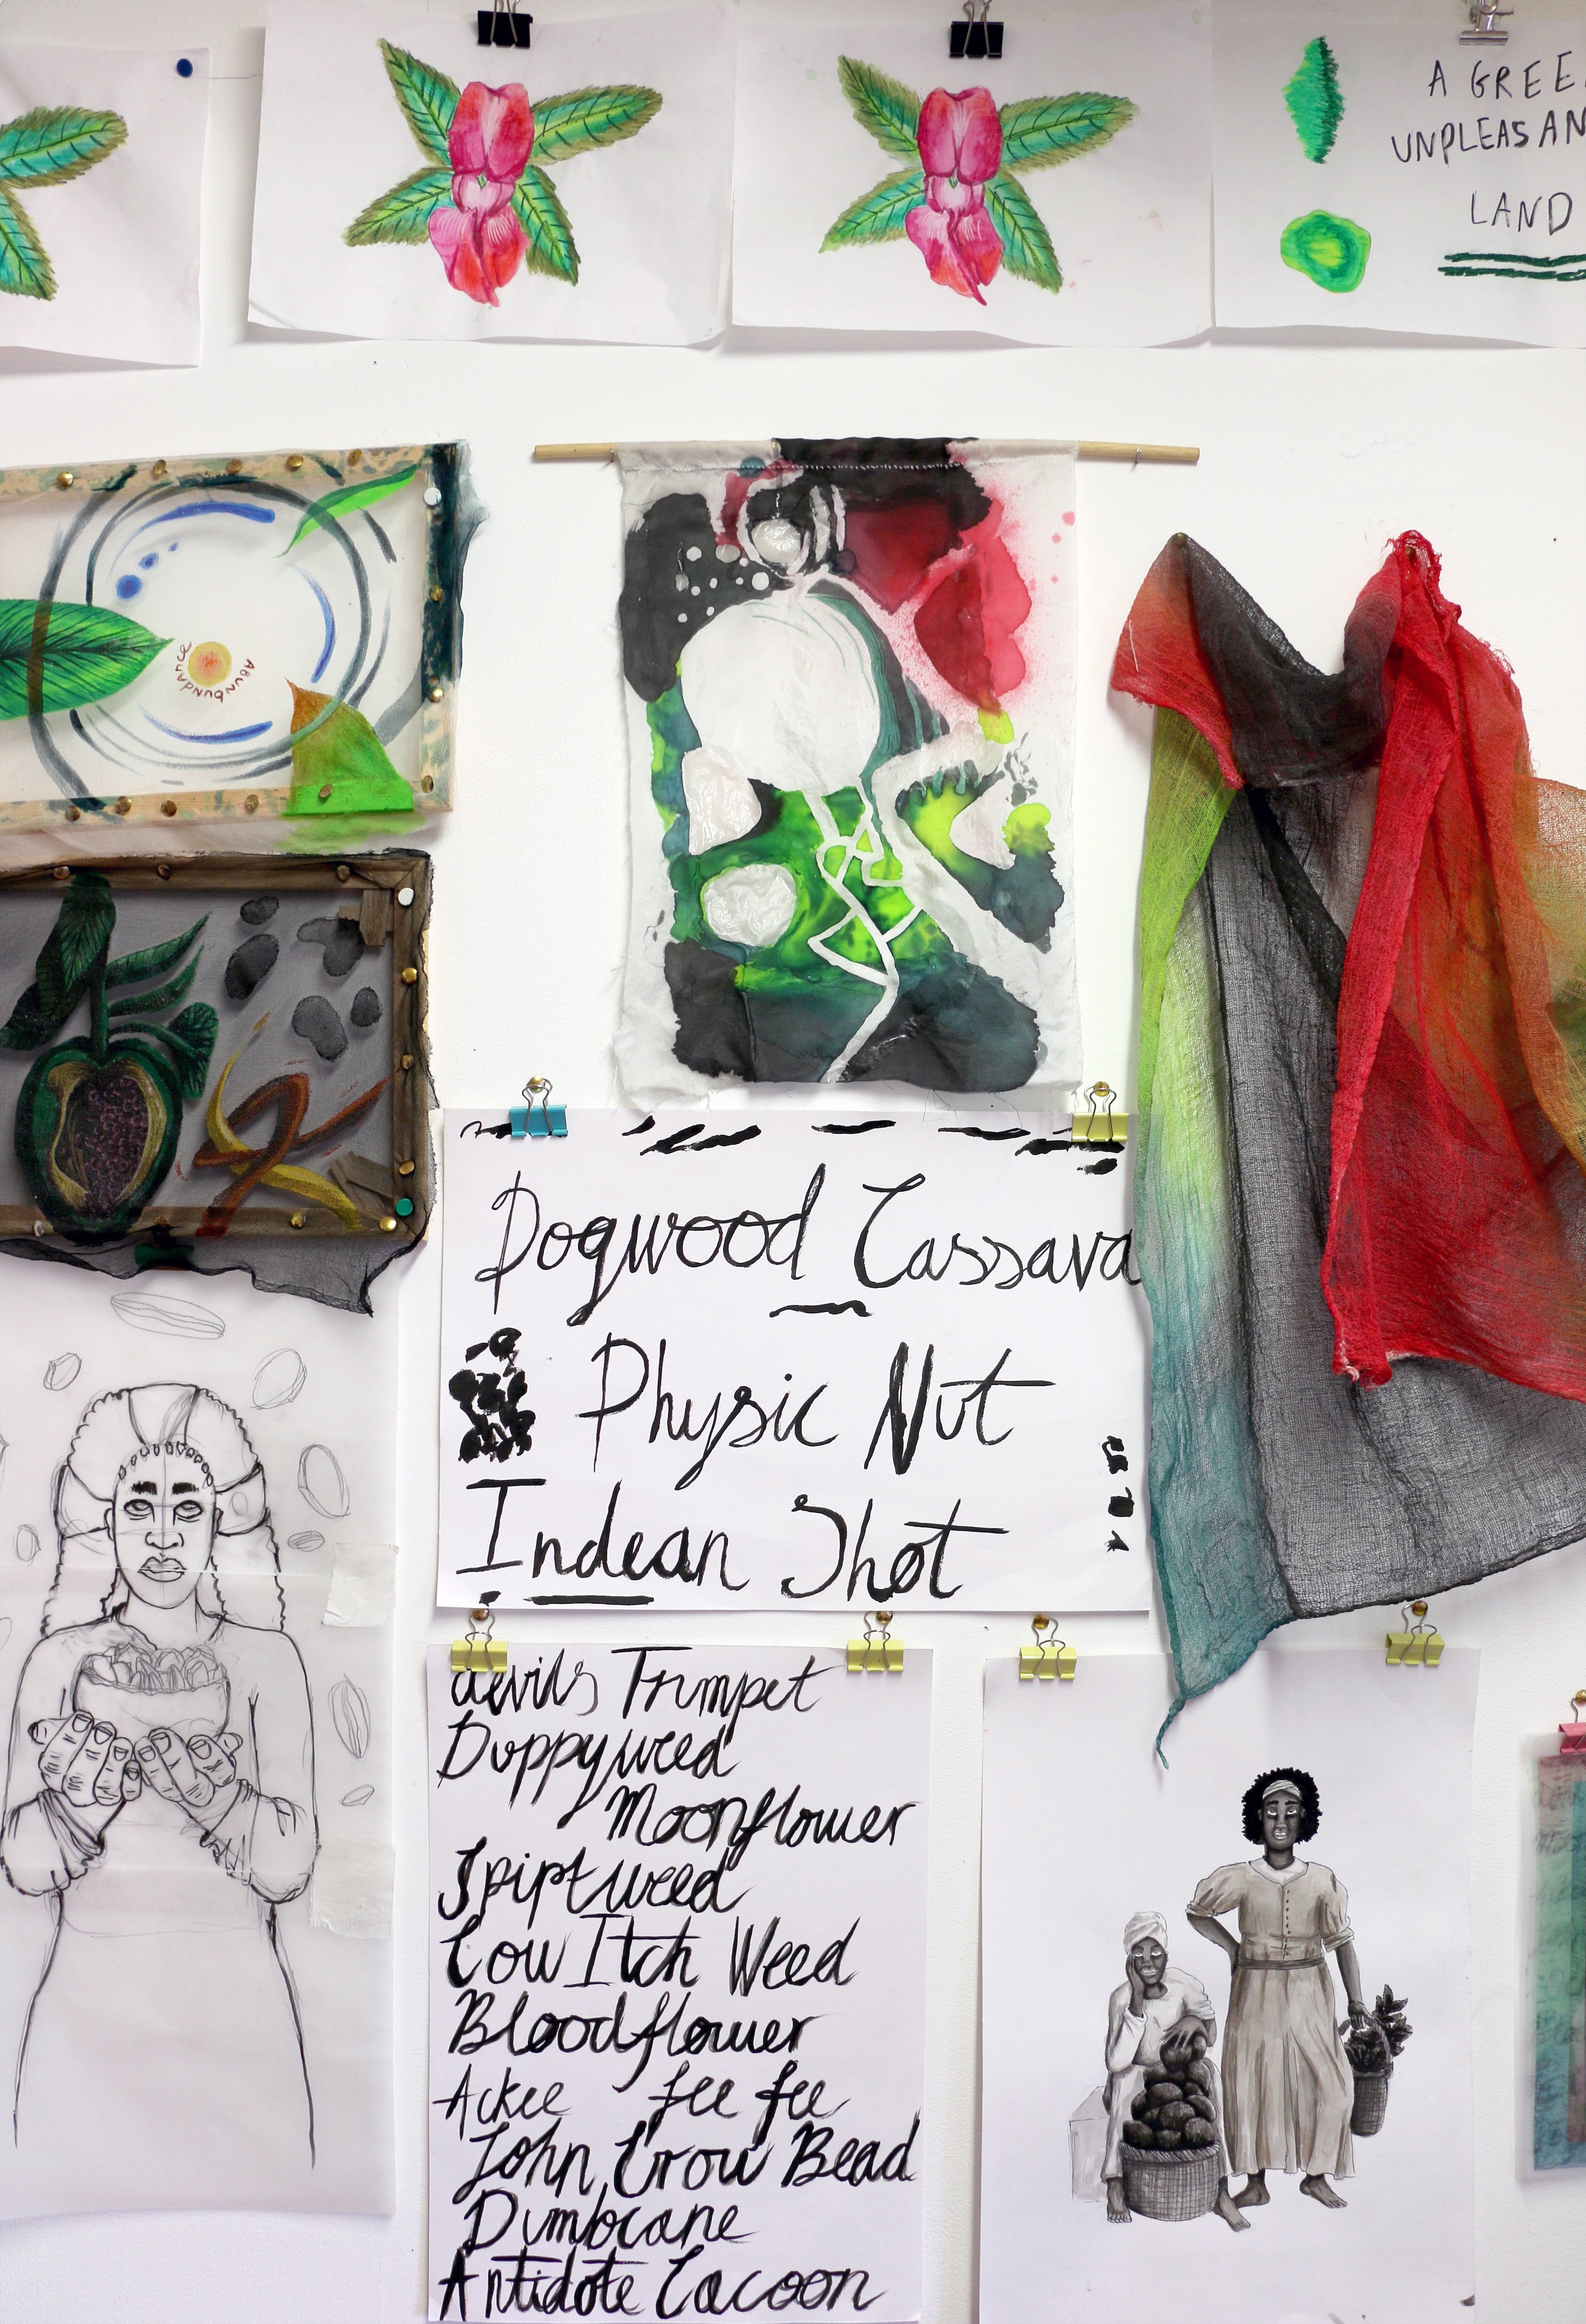 A GREE
UNPLEASAN
LAND
Abunbundance
Dogwood Cassava
Physic Nut
Indean Shot
devils Trumpet
Duppyweed
Moonflower
Spiptweed
Cow Itch Weed
Bloodflower
Ackee fee fee
John Crow Bead
Dumbcane
Antidote Cacoon